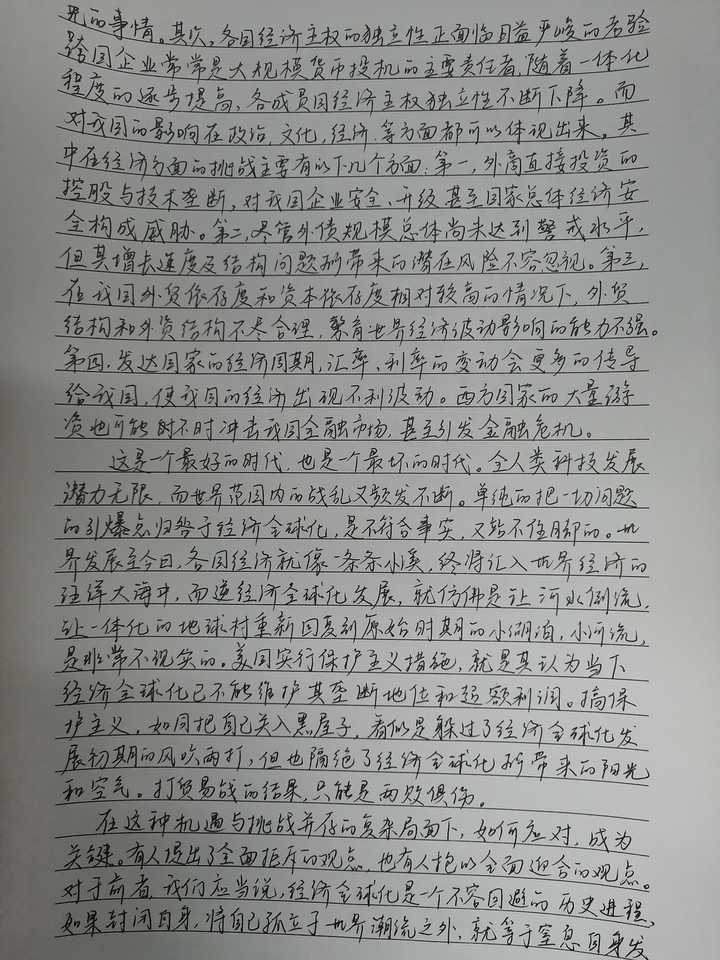 死的事情。其次，各国经济主权的独立性正面临日益严峻的考验
跨国企业常常是大规模货币投机的主要责任者，随着一体化
程度的逐步提高，各成员国经济主权独立性不断下降。而
对我国的影响在政治，文化，经济，等方面都可以体现出来。其
中在经济方面的挑战主要有以下几个方面：第一，外商直接投资的
控股与技术垄断，对我国企业安全、升级甚至国家总体经济安
全构成威胁。第二，尽管外债规模总体尚未达到警戒水平，
但其增长速度及结构问题所带来的潜在风险不容忽视。第三，
在我国外贸依存度和资本依存度相对较高的情况下，外贸
结构和外资结构不尽合理，聚育世界经济波动影响的能力不强。
第四，发达国家的经济周期，汇率、利率的变动会更多的传导
给我国，使我国的经济出现不利波动。西方国家的大量游
资也可能时不时冲击我国金融市场，甚至引发金融危机。
这是一个最好的时代，也是一个最坏的时代。全人类科技发展
潜力无限，而世界范围内的战乱又频发不断。单纯的把一切问题
的引爆点归咎于经济全球化，是不符合事实，又站不住脚的。世
界发展至今日，各国经济就像一条条小溪，终将汇入世界经济的
汪洋大海中，而逆经济全球化发展，就仿佛是让河水倒流，
让一体化的地球村重新回复到原始时期的小湖泊，小河流，
是非常不现实的。美国实行保护主义措施，就是其认为当下
经济全球化已不能维护其垄断地位和超额利润。搞保
护主义，如同把自己关入黑屋子，看似是躲过了经济全球化发
展初期的风吹雨打，但也隔绝了经济全球化所带来的阳光
和空气。打贸易战的结果，只能是两败俱伤。
在这种机遇与挑战并存的复杂局面下，如何应对，成为
关键。有人提出了全面拒斥的观点，也有人抱以全面迎合的观点。
对于前者，我们应当说，经济全球化是一个不容回避的历史进程，
如果封闭自身，将自己孤立于世界潮流之外，就等于窒息自身发